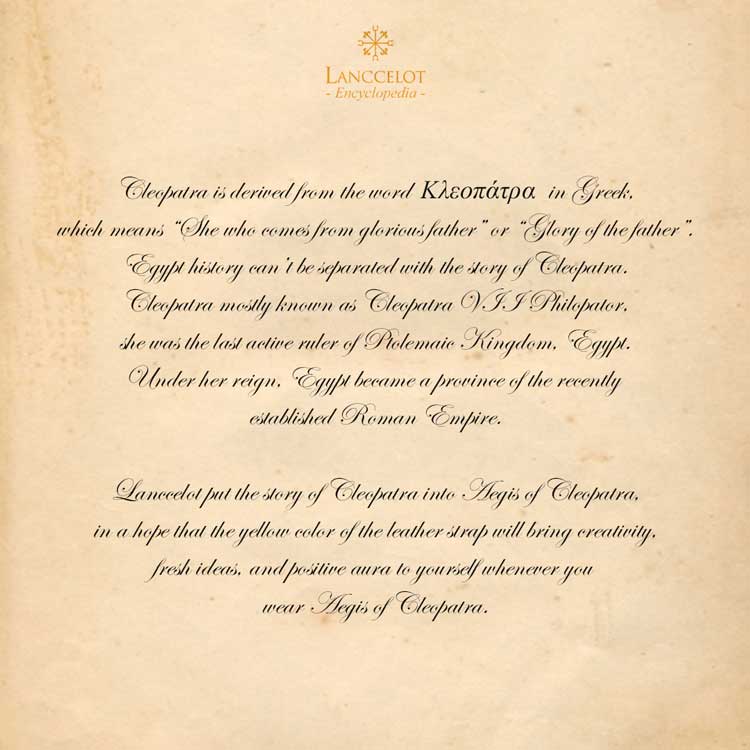 LANCCELOT
- Encyclopedia -
Cleopatra is derived from the word Κλεοπάτρα in Greek,
which means "She who comes from glorious father" or "Glory of the father".
Egypt history can't be separated with the story of Cleopatra.
Cleopatra mostly known as Cleopatra VII Philopator,
she was the last active ruler of Ptolemaic Kingdom, Egypt.
Under her reign, Egypt became a province of the recently
established Roman Empire.
Lanccelot put the story of Cleopatra into Aegis of Cleopatra,
in a hope that the yellow color of the leather strap will bring creativity,
fresh ideas, and positive aura to yourself whenever you
wear Aegis of Cleopatra.